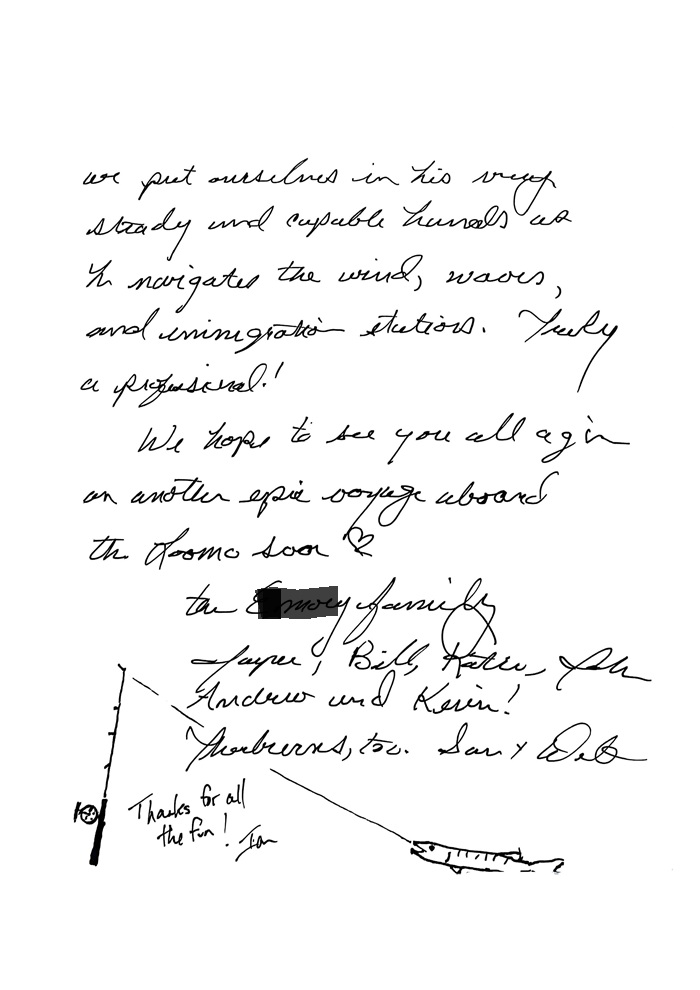 we put ourselves in his very
steady and capable hands as
he navigates the wind, waves,
and immigration stations. Truly
a professional!
We hope to see you all agin
on another epic voyage aboard
the soon
the family
Bill, Katie,
Andrew and Kevin!
too. Dan & Deb
Thanks for all
the fun! Ian